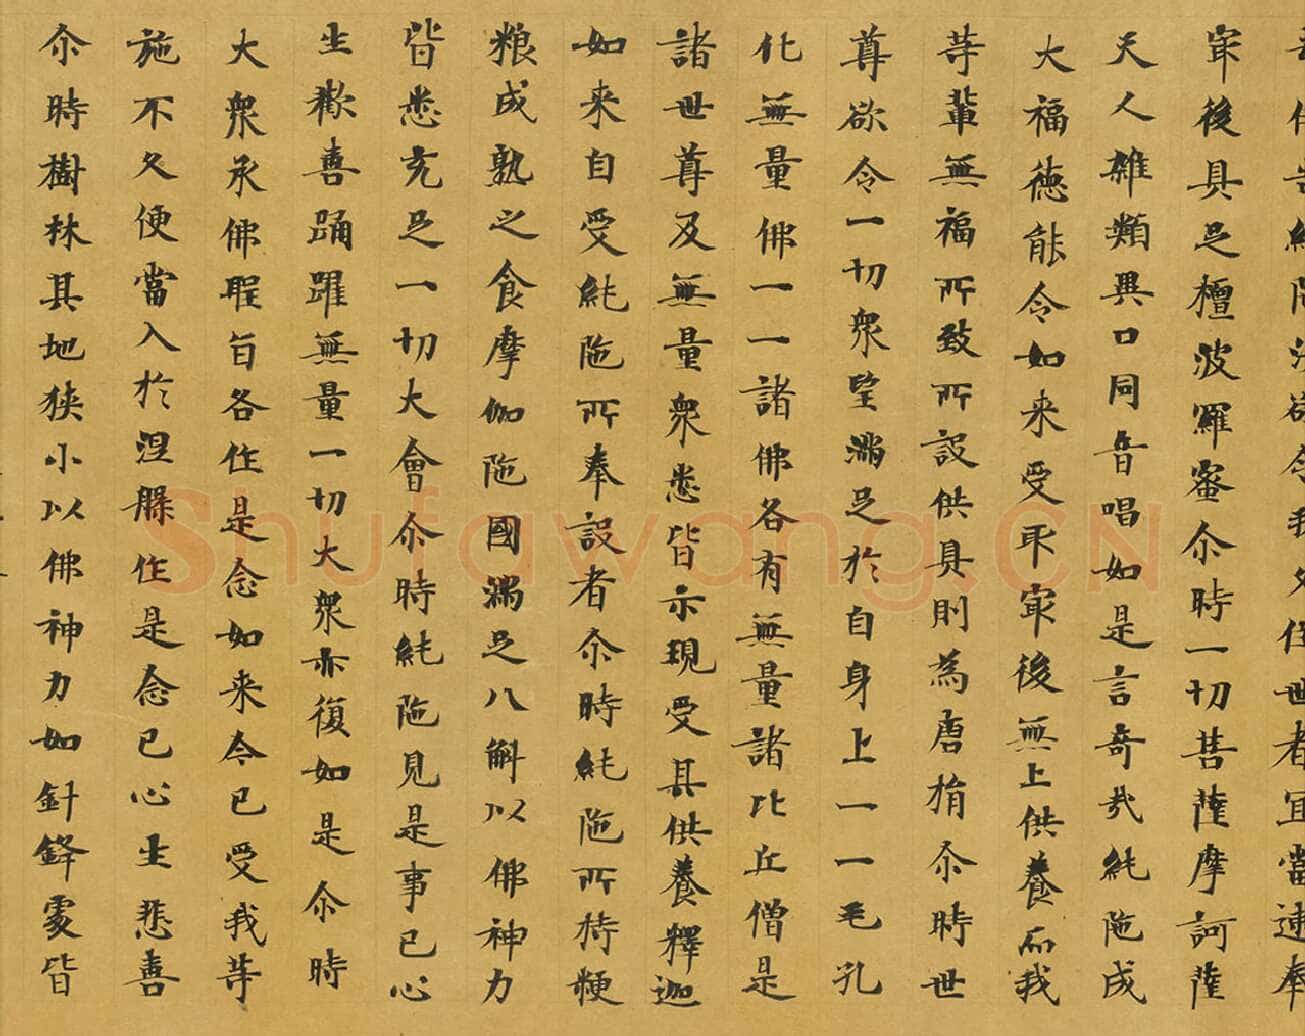 告純陁汝欲令我久住世者宜當速奉
冣後具足檀波羅蜜尒時一切菩薩摩訶薩
天人雜類異口同音唱如是言奇哉純陁成
大福德能令如来受取冣後無上供養而我
等輩無福所致所設供具則為唐捐尒時世
尊欲令一切衆望滿足於自身上一一毛孔
化無量佛一一諸佛各有無量諸比丘僧是
諸世尊及無量衆悉皆示現受其供養釋迦
如来自受純陁所奉設者尒時純陁所持粳
粮成熟之食摩伽陁國滿足八斛以佛神力
皆悉充足一切大會尒時純陁見是事已心
生歡喜踊躍無量一切大衆亦復如是尒時
大衆承佛聖旨各作是念如来今已受我等
施不久便當入於涅槃作是念已心生悲喜
尒時樹林其地狹小以佛神力如針鋒處皆
Shufawang.CN